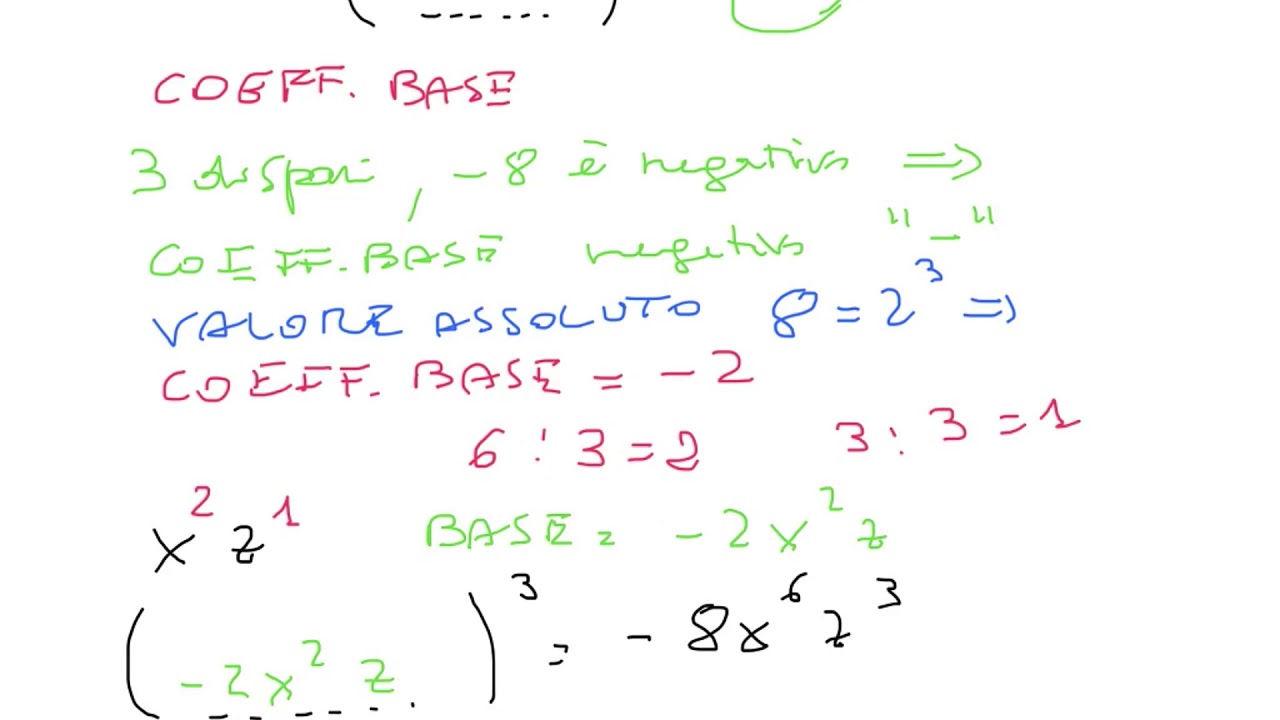 ( ------ )
COEFF. BASE
3 dispari, -8 è negativo =>
COEFF. BASE negativo "-"
VALORE ASSOLUTO 8 = 2³ =>
COEFF. BASE = -2
6 : 3 = 2 3 : 3 = 1
x² z¹ BASE = -2x² z
(-2x² z)³ = -8x⁶ z³